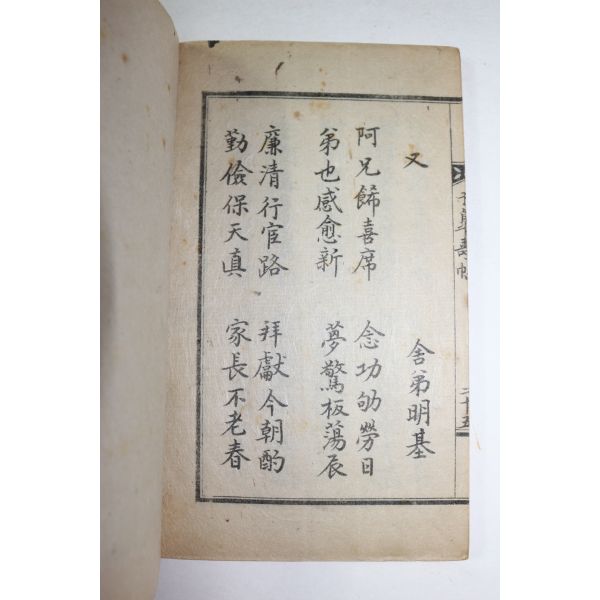 又 舍弟明基
阿兄餙喜席 念功劬勞日
弟也感愈新 夢驚板蕩辰
廉清行宦路 拜獻今朝酌
勤儉保天真 家長不老春
二十五